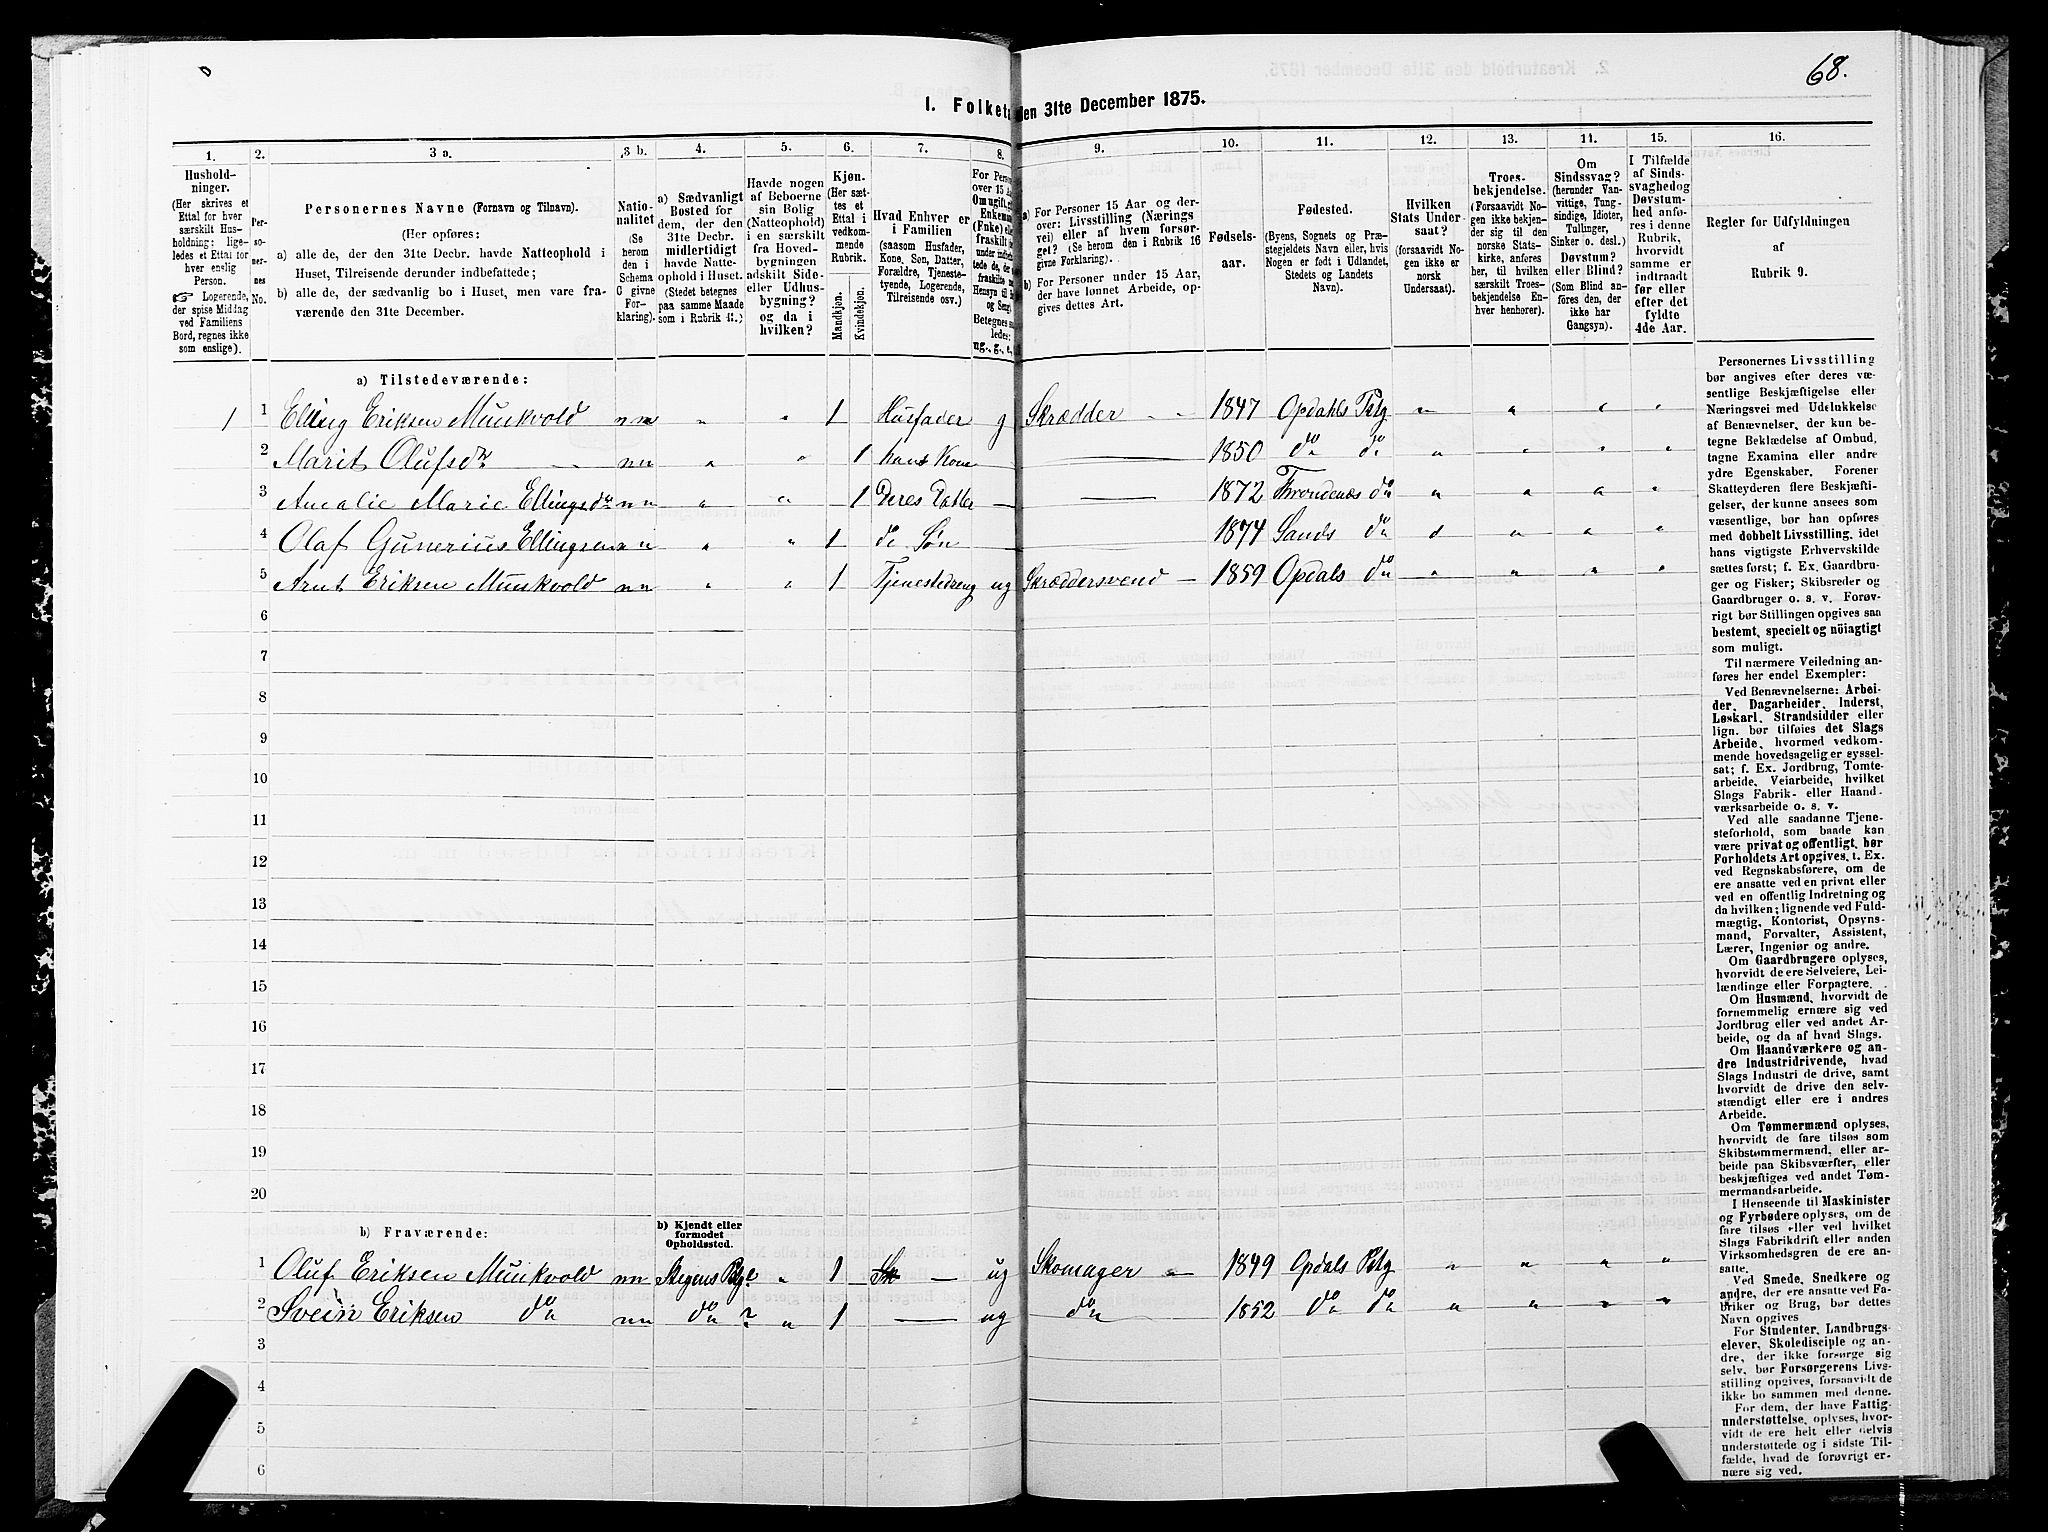 68.
I. Folket
den 31te December 1875.
1.
2.
3 a.
3 b.
4.
5.
6.
7.
8.
9.
10.
11.
12.
13.
14.
15.
16.
Hushold-
ninger.
(Her skrives et
Ettal for hver
særskilt Hus-
holdning; lige-
ledes et Ettal for
hver enslig
Person.
☞ Logerende,
der spise Middag
ved Familiens
Bord, regnes ikke
som enslige).
Per-
so-
ner-
nes
No.
Personernes Navne (Fornavn og Tilnavn).
(Her opføres:
a) alle de, der den 31te Decbr. havde Natteophold i
Huset, Tilreisende derunder indbefattede;
b) alle de, der sædvanlig bo i Huset, men vare fra-
værende den 31te December.
Natio-
nalitet
(Se
herom
den i
Schema
G givne
For-
klaring).
a) Sædvanligt
Bosted for
dem, der den
31te Decbr.
midlertidigt
havde Natte-
ophold i Huset.
(Stedet betegnes
paa samme Maade
som i Rubrik 11.)
Havde nogen
af Beboerne
sin Bolig
(Natteophold)
i en særskilt
fra Hoved-
bygningen
adskilt Side-
eller Udhus-
bygning?
og da i
hvilken?
Kjøn.
(Her sæt-
tes et
Ettal i
vedkom-
mende
Rubrik.
Mandkjøn.
Kvindekjøn.
Hvad Enhver er
i Familien
(saasom Husfader,
Kone, Søn, Datter,
Forældre, Tjeneste-
tyende, Logerende,
Tilreisende osv.)
For Perso
over 15 Aa
Om ugift, g
Enkem
(Fnke) elle
fraskilt
Betegnes sa
ledes:
ug., g., e,
a) For Personer 15 Aar og der-
over: Livsstilling (Nærings
vei) eller af hvem forsør-
get? (Se herom den i Rubrik 16
givne Forklaring).
b) For Personer under 15 Aar,
der have lønnet Arbeide, op-
gives dettes Art.
Fødsels-
aar.
Fødested.
(Byens, Sognets og Præ-
stegjeldets Navn eller, hvis
Nogen er født i Udlandet,
Stedets og Landets
Navn).
Hvilken
Stats Under-
saat?
(forsaavidt No-
gen ikke er
norsk
Undersaat).
Troes-
bekjendelse.
(Forsaavidt No-
gen ikke bekjen-
der sig til den
norske Stats-
kirke, anføres
her, til hvilken
særskilt Troes-
bekjendelse En-
hver henhører).
Om
Sindssvag?
(herunder Van-
vittige, Tung-
sindige, Idioter,
Tullinger,
Sinker o. desl.)
Døvstum?
eller Blind?
(Som Blind an-
føres den, der
ikke har
Gangsyn).
I Tilfælde
af Sinds-
svaghed og
Døvstum-
hed anfø-
res i denne
Rubrik,
hvorvidt
samme er
indtraadt
før eller
efter det
fyldte
4de Aar.
Regler for Udfyldningen
af
Rubrik 9.
a) Tilstedeværende:
1 1 Elling Eriksen Munkvold nn " " 1 Husfader g Skrædder 1847 Opdahls Pstg " " " "
2 Marit Olufsdr nn " " 1 hans Kone 1850 do do " " " "
3 Amalie Marie Ellingsdr nn " " 1 Deres Datter 1872 Trondenæs do " " " "
4 Olaf Gunerius Ellingsen nn " " 1 do Søn 1874 Sands do " " " "
5 Arnt Eriksen Munkvold nn " " 1 Tjenestedreng ug Skræddersvend 1859 Opdals do " " " "
6
7
8
9
10
11
12
13
14
15
16
17
18
19
20
b) Fraværende:
b) Kjendt eller
formodet
Opholdssted.
1 Oluf Eriksen Munkvold nn Stegens Pstg " 1 ug Skomager 1849 Opdals Pstg " " " "
2 Svein Eriksen do nn do " 1 ug do 1852 do do " " " "
3
4
5
6
Personernes Livsstilling
bør angives efter deres væ-
sentlige Beskjæftigelse eller
Næringsvei med Udelukkelse
af Benævnelser, der kun be-
tegne Beklædelse af Ombud,
tagne Examina eller andre
ydre Egenskaber. Forener
Skatteyderen flere Beskjæfti-
gelser, der kunne ansees som
væsentlige, bør han opføres
med dobbelt Livsstilling, idet
hans vigtigste Erhvervskilde
sættes først; f. Ex. Gaardbru-
ger og Fisker; Skibsreder og
Gaardbruger o. s. v. Forøv-
rigt bør Stillingen opgives saa
bestemt, specielt og nöiagtigt
som muligt.
Til nærmere Veiledning an-
føres her endel Exempler:
Ved Benævnelserne: Arbei-
der, Dagarbeider, Inderst,
Løskarl, Strandsidder eller
lign. bør tilføies det Slags
Arbeide, hvormed vedkom-
mende hovedsagelig er syssel-
sat; f. Ex. Jordbrug, Tomte-
arbeide, Veiarbeide, hvilket
Slags Fabrik- eller Haand-
værksarbeide o. s. v.
Ved alle saadanne Tjene-
steforhold, som baade kan
være privat og offentligt, bør
Forholdets Art opgives, t. Ex.
ved Regnskabsførere, om de
ere ansatte ved en privat eller
ved en offentlig Indretning og
da hvilken; lignende ved Fuld-
mægtig, Kontorist, Opsyns-
mand, Forvalter, Assistent,
Lærer, Ingeniør og andre.
Om Gaardbrugere oplyses,
hvorvidt de ere Selveiere, Lei-
lændinge eller Forpagtere.
Om Husmænd, hvorvidt de
fornemmelig ernære sig ved
Jordbrug eller ved andet Ar-
beide, og da af hvad Slags.
Om Haandværkere og an-
dre Industridrivende, hvad
Slags Industri de drive, samt
hvorvidt de drive den selv-
stændigt eller ere i andres
Arbeide.
Om Tømmermænd oplyses,
hvorvidt de fare tilsøs som
Skibstømmermænd, eller ar-
beide paa Skibsværfter, eller
beskjæftiges ved andet Tøm-
mermandsarbeide.
I Henseende til Maskinister
og Fyrbødere oplyses, om de
fare tilsøs eller ved hvilket
Slags Fabrikdrift eller anden
Virksomhedsgren de ere an-
satte.
Ved Smede, Snedkere og
andre, der ere ansatte ved Fa-
briker og Brug, bør dettes
Navn opgives
For Studenter, Landbrugs-
elever, Skoledisciple og an-
dre, der ikke forsørge sig
selv, bør Forsørgerens Livs-
stilling opgives, forsaavidt de
ikke bo sammen med denne.
For dem, der have Fattig-
understøttelse, oplyses, hvor-
vidt de ere helt eller delvis
understøttede og i sidste Til-
fælde, hvad de forøvrigt er-
nære sig ved.